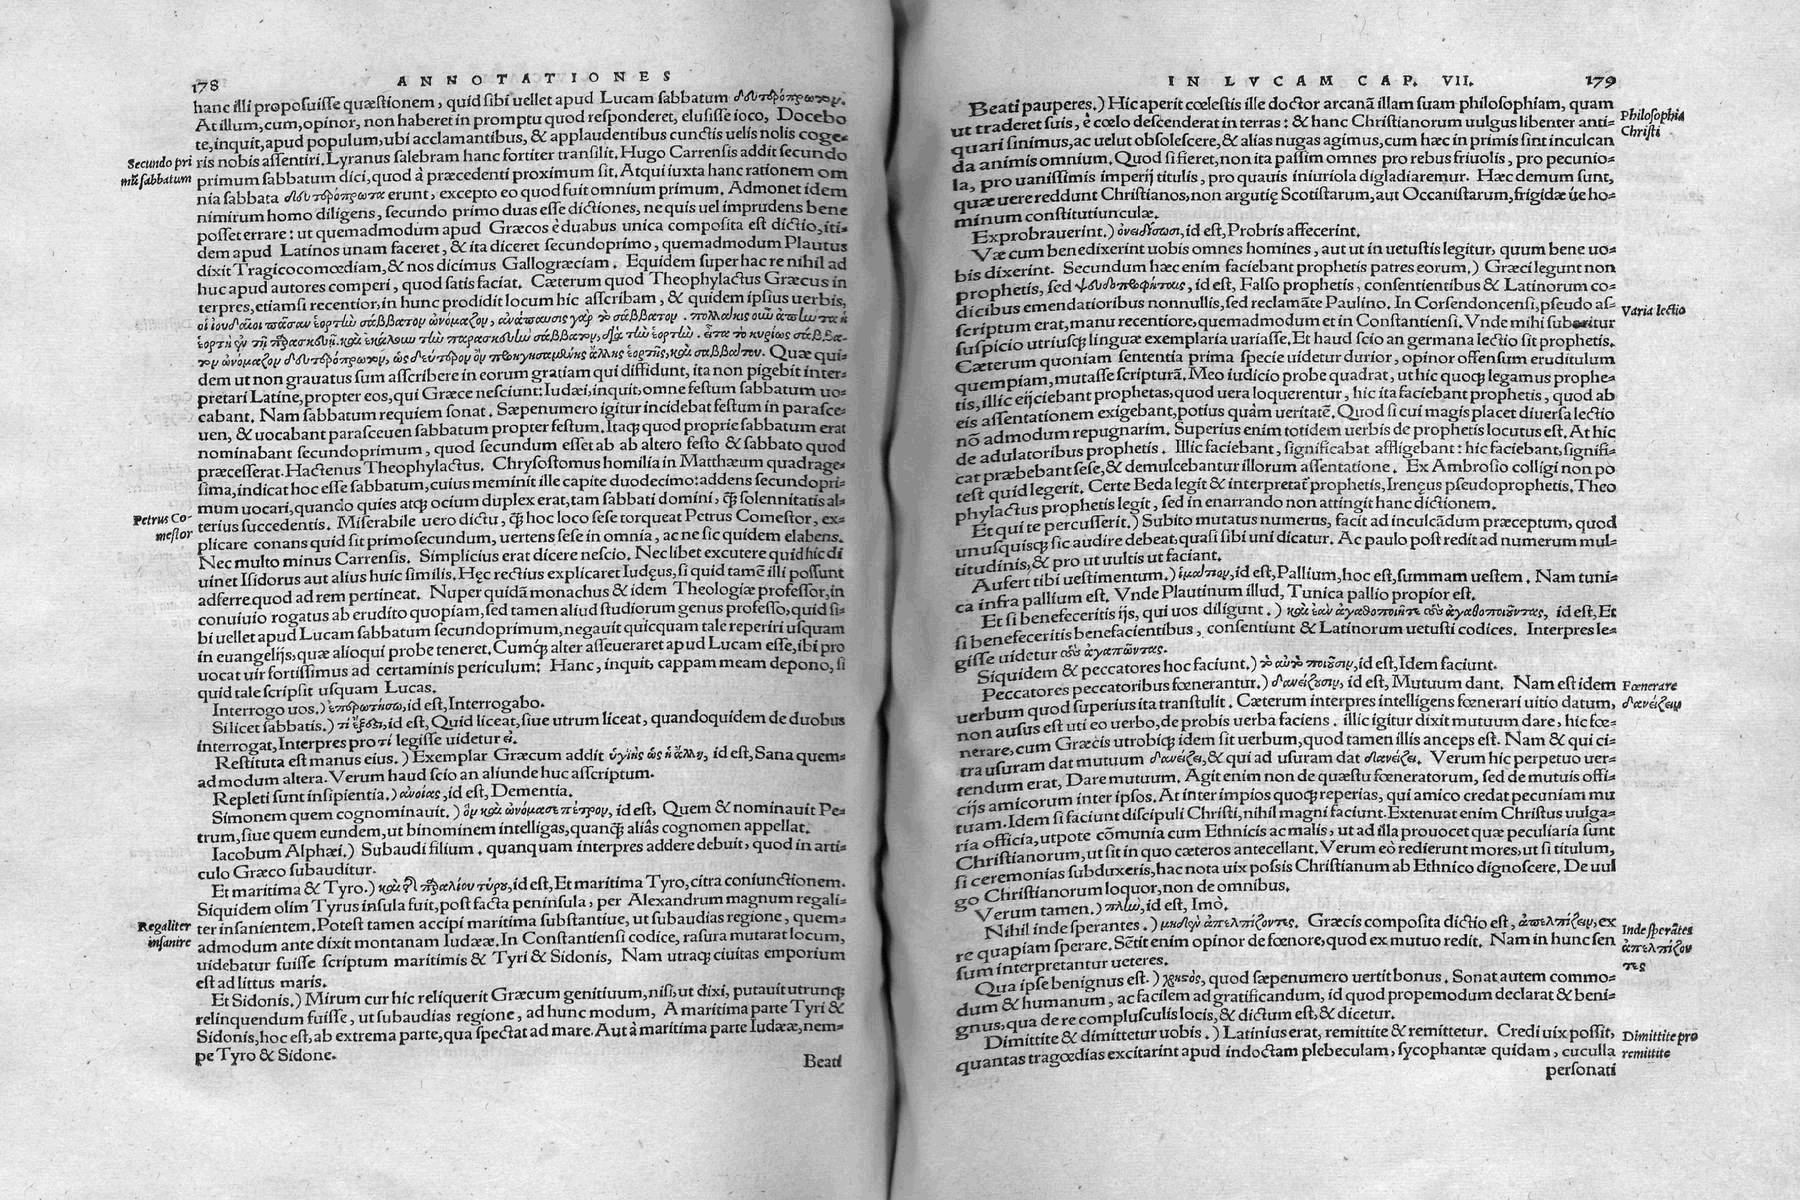 178
ANNOTATIONES
hanc illi proposuisse quæstionem, quid sibi uellet apud Lucam sabbatum δευτερόπρωτον.
At illum, cum, opinor, non haberet in promptu quod responderet, elusisse ioco, Docebo
te, inquit, apud populum, ubi acclamantibus, & applaudentibus cunctis uelis nolis coge-
Secundo pri
mū sabbatum
ris nobis assentiri. Lyranus salebram hanc fortiter transilit. Hugo Carrensis addit secundo
primum sabbatum dici, quod à præcedenti proximum sit. Atqui iuxta hanc rationem om
nia sabbata δευτερόπρωτα erunt, excepto eo quod fuit omnium primum. Admonet idem
nimirum homo diligens, secundo primo duas esse dictiones, ne quis uel imprudens bene
posset errare: ut quemadmodum apud Græcos è duabus unica composita est dictio, iti-
dem apud Latinos unam faceret, & ita diceret secundoprimo, quemadmodum Plautus
dixit Tragicocomœdiam, & nos dicimus Gallogræciam. Equidem super hac re nihil ad
huc apud autores comperi, quod satis faciat. Cæterum quod Theophylactus Græcus in
terpres, etiamsi recentior, in hunc prodidit locum hic asscribam, & quidem ipsius uerbis,
οἱ ἰουδαῖοι πᾶσαν ἑορτὴν σάββατον ὠνόμαζον, ἀνάπαυσις γὰρ τὸ σάββατον. πολλάκις οὖν ἀπήντα ἡ
ἑορτὴ ἐν τῇ παρασκευῇ, καὶ ἐκάλουν τὴν παρασκευὴν σάββατον, διὰ τὴν ἑορτὴν. εἶτα τὸ κυρίως σάββα-
τον ὠνόμαζον δευτερόπρωτον, ὡς δεύτερον ὂν προηγησαμένης ἄλλης ἑορτῆς, καὶ σαββάτου. Quæ qui-
dem ut non grauatus sum asscribere in eorum gratiam qui diffidunt, ita non pigebit inter-
pretari Latine, propter eos, qui Græce nesciunt: Iudæi, inquit, omne festum sabbatum uo-
cabant. Nam sabbatum requiem sonat. Sæpenumero igitur incidebat festum in parasce-
uen, & uocabant parasceuen sabbatum propter festum. Itaq; quod proprie sabbatum erat
nominabant secundoprimum, quod secundum esset ab ab altero festo & sabbato quod
præcesserat. Hactenus Theophylactus. Chrysostomus homilia in Matthæum quadrage-
sima, indicat hoc esse sabbatum, cuius meminit ille capite duodecimo: addens secundopri-
mum uocari, quando quies atq; ocium duplex erat, tam sabbati domini, q̃ solennitatis al-
Petrus Co-
mestor
terius succedentis. Miserabile uero dictu, q̃ hoc loco sese torqueat Petrus Comestor, ex-
plicare conans quid sit primosecundum, uertens sese in omnia, ac ne sic quidem elabens.
Nec multo minus Carrensis. Simplicius erat dicere nescio. Nec libet excutere quid hic di
uinet Isidorus aut alius huic similis. Hęc rectius explicaret Iudęus, si quid tamē illi possunt
adferre quod ad rem pertineat. Nuper quidā monachus & idem Theologiæ professor, in
conuiuio rogatus ab erudito quopiam, sed tamen aliud studiorum genus professo, quid si-
bi uellet apud Lucam sabbatum secundoprimum, negauit quicquam tale reperiri usquam
in euangelijs, quæ alioqui probe teneret. Cumq; alter asseueraret apud Lucam esse, ibi pro
uocat uir fortissimus ad certaminis periculum: Hanc, inquit, cappam meam depono, si
quid tale scripsit usquam Lucas.
Interrogo uos.) ἐπερωτήσω, id est, Interrogabo.
Si licet sabbatis.) τί ἔξεστι, id est, Quid liceat, siue utrum liceat, quandoquidem de duobus
interrogat, Interpres pro τί legisse uidetur εἰ.
Restituta est manus eius.) Exemplar Græcum addit ὑγιὴς ὡς ἡ ἄλλη, id est, Sana quem-
admodum altera. Verum haud scio an aliunde huc asscriptum.
Repleti sunt insipientia.) ἀνοίας, id est, Dementia.
Simonem quem cognominauit.) ὃν καὶ ὠνόμασε πέτρον, id est, Quem & nominauit Pe-
trum, siue quem eundem, ut binominem intelligas, quanq̃ aliâs cognomen appellat.
Iacobum Alphæi.) Subaudi filium, quanquam interpres addere debuit, quod in arti-
culo Græco subauditur.
Et maritima & Tyro.) καὶ τῆς παραλίου τύρου, id est, Et maritima Tyro, citra coniunctionem.
Siquidem olim Tyrus insula fuit, post facta peninsula, per Alexandrum magnum regali-
Regaliter
insanire
ter insanientem. Potest tamen accipi maritima substantiue, ut subaudias regione, quem-
admodum ante dixit montanam Iudææ. In Constantiensi codice, rasura mutarat locum,
uidebatur fuisse scriptum maritimis & Tyri & Sidonis, Nam utraq; ciuitas emporium
est ad littus maris.
Et Sidonis.) Mirum cur hic reliquerit Græcum genitiuum, nisi, ut dixi, putauit utrunq;
relinquendum fuisse, ut subaudias regione, ad hunc modum, A maritima parte Tyri &
Sidonis, hoc est, ab extrema parte, qua spectat ad mare. Aut à maritima parte Iudææ, nem-
pe Tyro & Sidone.
Beati
IN LVCAM CAP. VII.
179
Beati pauperes.) Hic aperit cœlestis ille doctor arcanā illam suam philosophiam, quam
Philosophia
Christi
ut traderet suis, è cœlo descenderat in terras: & hanc Christianorum uulgus libenter anti-
quari sinimus, ac uelut obsolescere, & alias nugas agimus, cum hæc in primis sint inculcan
da animis omnium. Quod si fieret, non ita passim omnes pro rebus friuolis, pro pecunio-
la, pro uanissimis imperij titulis, pro quauis iniuriola digladiaremur. Hæc demum sunt,
quæ uere reddunt Christianos, non argutię Scotistarum, aut Occanistarum, frigidæ úe ho-
minum constitutiunculæ.
Exprobrauerint.) ὀνειδίσωσι, id est, Probris affecerint.
Væ cum benedixerint uobis omnes homines, aut ut in uetustis legitur, quum bene uo-
bis dixerint. Secundum hæc enim faciebant prophetis patres eorum.) Græci legunt non
prophetis, sed ψευδοπροφήταις, id est, Falso prophetis, consentientibus & Latinorum co-
dicibus emendatioribus nonnullis, sed reclamāte Paulino. In Corsendoncensi, pseudo as-
Varia lectio
scriptum erat, manu recentiore, quemadmodum et in Constantiensi. Vnde mihi suboritur
suspicio utriusq; linguæ exemplaria uariasse. Et haud scio an germana lectio sit prophetis.
Cæterum quoniam sententia prima specie uidetur durior, opinor offensum eruditulum
quempiam, mutasse scripturā. Meo iudicio probe quadrat, ut hic quoq; legamus prophe-
tis, illic eijciebant prophetas, quod uera loquerentur, hic ita faciebant prophetis, quod ab
eis assentationem exigebant, potius quàm ueritatē. Quod si cui magis placet diuersa lectio
nō admodum repugnarim. Superius enim totidem uerbis de prophetis locutus est. At hic
de adulatoribus prophetis. Illic faciebant, significabat affligebant: hic faciebant, signifi-
cat præbebant sese, & demulcebantur illorum assentatione. Ex Ambrosio colligi non po
test quid legerit. Certe Beda legit & interpretat̃ prophetis, Irenęus pseudoprophetis. Theo
phylactus prophetis legit, sed in enarrando non attingit hanc dictionem.
Et qui te percusserit.) Subito mutatus numerus, facit ad inculcādum præceptum, quod
unusquisq; sic audire debeat, quasi sibi uni dicatur. Ac paulo post redit ad numerum mul-
titudinis, & pro ut uultis ut faciant.
Aufert tibi uestimentum.) ἱμάτιον, id est, Pallium, hoc est, summam uestem. Nam tuni-
ca infra pallium est. Vnde Plautinum illud, Tunica pallio propior est.
Et si benefeceritis ijs, qui uos diligunt.) καὶ ἐὰν ἀγαθοποιῆτε τοὺς ἀγαθοποιοῦντας, id est, Et
si benefeceritis benefacientibus, consentiunt & Latinorum uetusti codices. Interpres le-
gisse uidetur τοὺς ἀγαπῶντας.
Siquidem & peccatores hoc faciunt.) τὸ αὐτὸ ποιοῦσιν, id est, Idem faciunt.
Peccatores peccatoribus fœnerantur.) δανείζουσιν, id est, Mutuum dant. Nam est idem
Fœnerare
δανείζειν
uerbum quod superius ita transtulit. Cæterum interpres intelligens fœnerari uitio datum,
non ausus est uti eo uerbo, de probis uerba faciens. illic igitur dixit mutuum dare, hic fœ-
nerare, cum Græcis utrobiq; idem sit uerbum, quod tamen illis anceps est. Nam & qui ci-
tra usuram dat mutuum δανείζει, & qui ad usuram dat δανείζει. Verum hic perpetuo uer-
tendum erat, Dare mutuum. Agit enim non de quæstu fœneratorum, sed de mutuis offi-
cijs amicorum inter ipsos. At inter impios quoq; reperias, qui amico credat pecuniam mu
tuam. Idem si faciunt discipuli Christi, nihil magni faciunt. Extenuat enim Christus uulga-
ria officia, utpote cōmunia cum Ethnicis ac malis, ut ad illa prouocet quæ peculiaria sunt
Christianorum, ut sit in quo cæteros antecellant. Verum eò redierunt mores, ut si titulum,
si ceremonias subduxeris, hac nota uix possis Christianum ab Ethnico dignoscere. De uul
go Christianorum loquor, non de omnibus.
Verum tamen.) πλὴν, id est, Imò.
Nihil inde sperantes.) μηδὲν ἀπελπίζοντες. Græcis composita dictio est, ἀπελπίζειν, ex
Inde sperātes
ἀπελπίζον
τες
re quapiam sperare. Sētit enim opinor de fœnore, quod ex mutuo redit. Nam in hunc sen
sum interpretantur ueteres.
Qua ipse benignus est.) χρηστός, quod sæpenumero uertit bonus. Sonat autem commo-
dum & humanum, ac facilem ad gratificandum, id quod propemodum declarat & beni-
gnus, qua de re complusculis locis, & dictum est, & dicetur.
Dimittite & dimittetur uobis.) Latinius erat, remittite & remittetur. Credi uix possit,
Dimittite pro
remittite
quantas tragœdias excitarint apud indoctam plebeculam, sycophantæ quidam, cuculla
personati